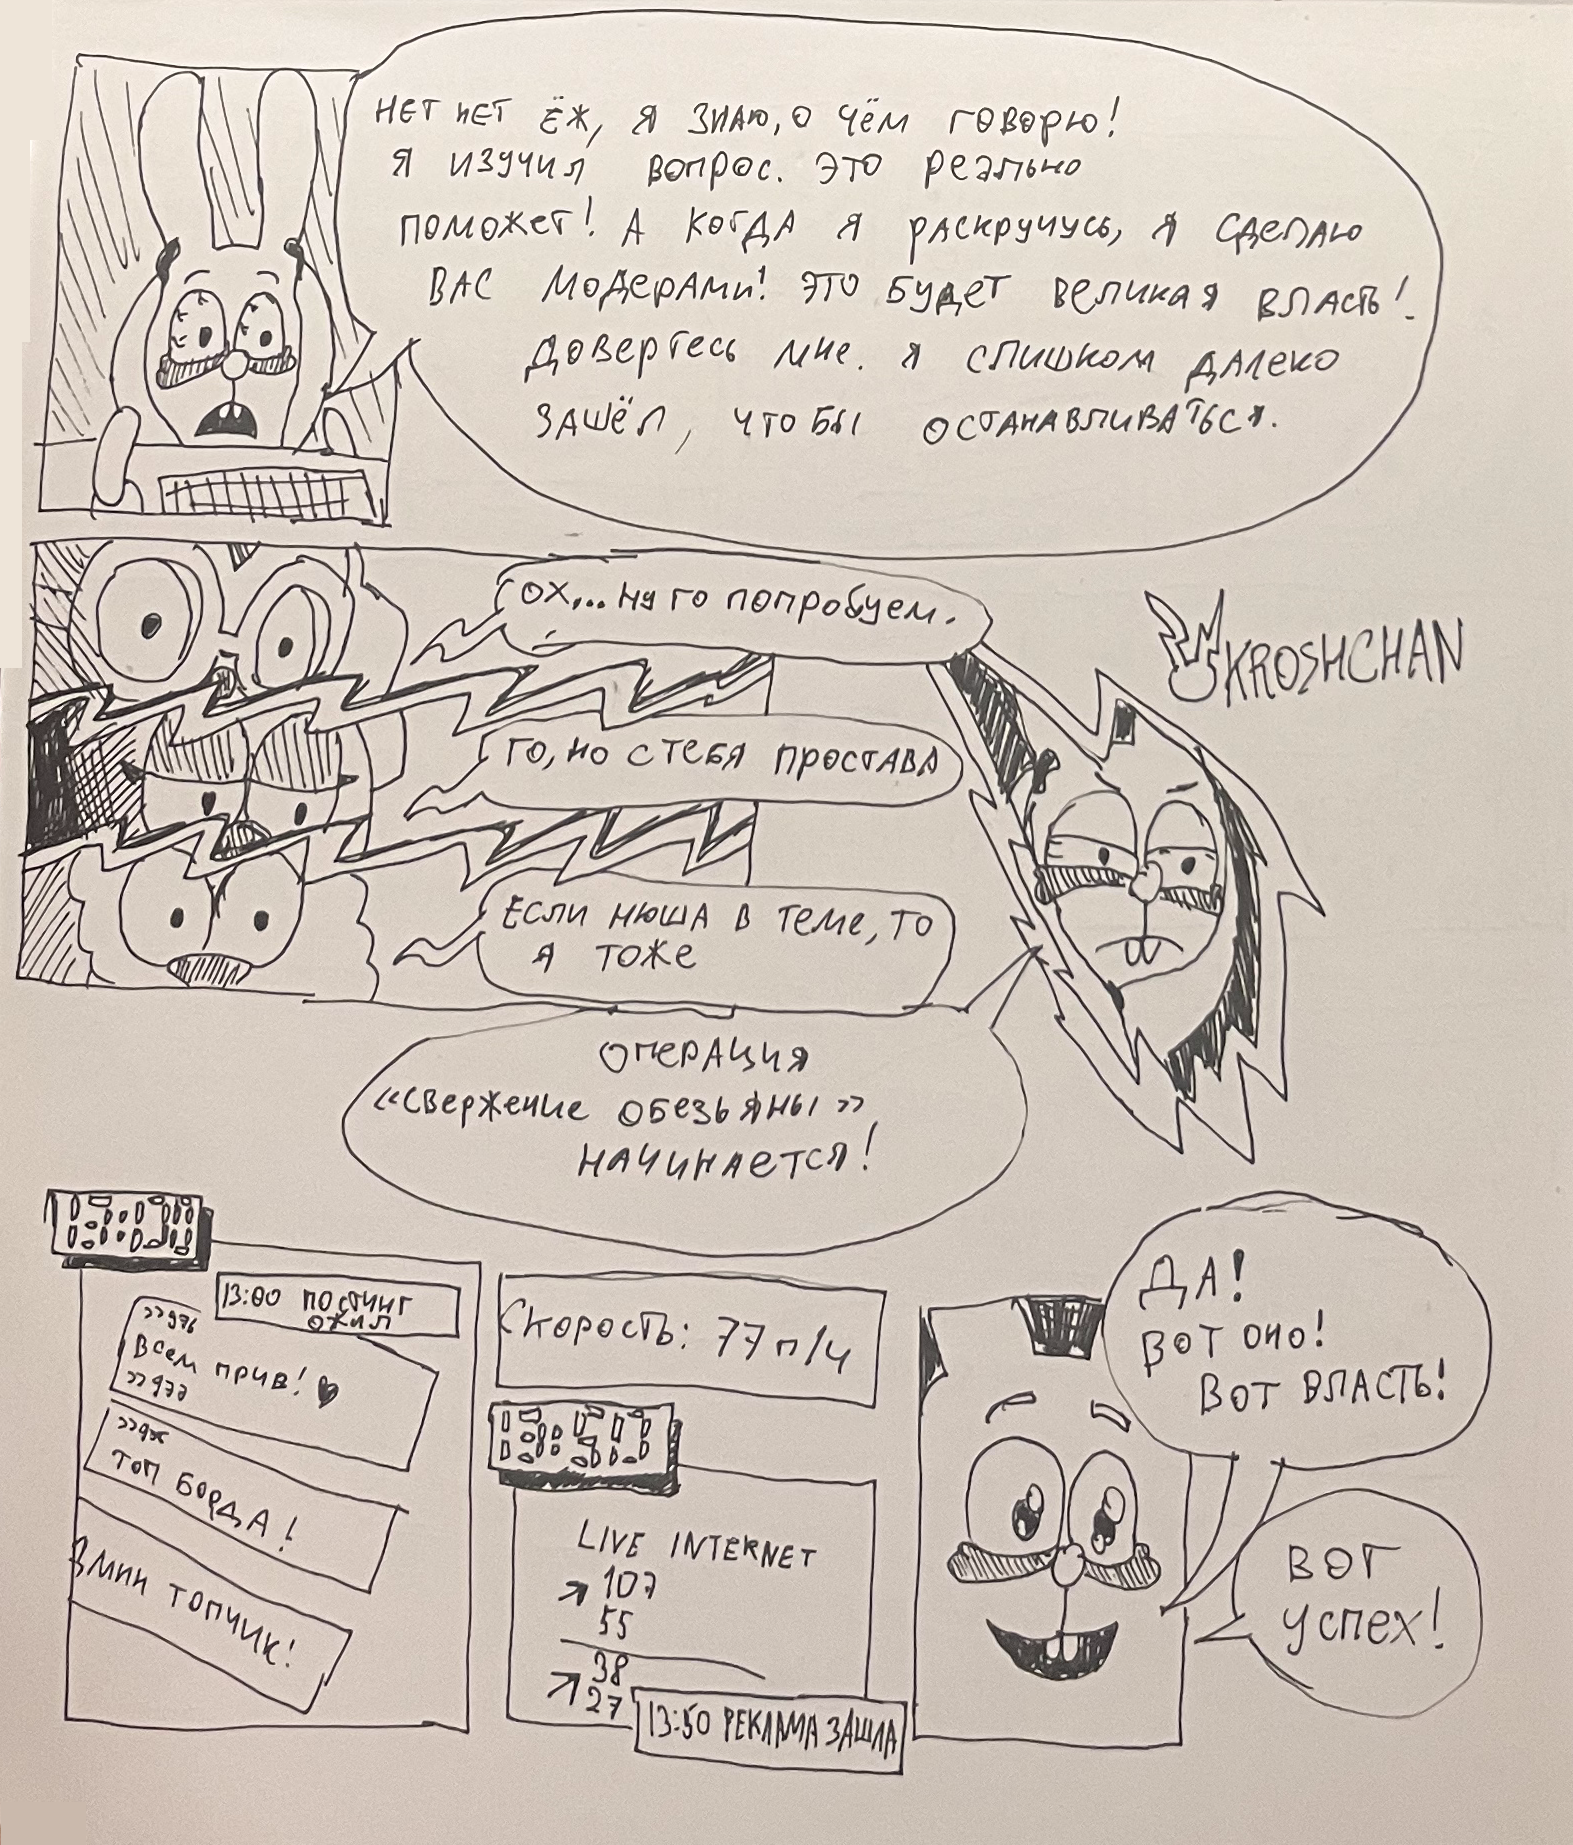 НЕТ НЕТ ЁЖ, Я ЗНАЮ, О ЧЁМ ГОВОРЮ!
Я ИЗУЧИЛ ВОПРОС. ЭТО РЕАЛЬНО
ПОМОЖЕТ! А КОГДА Я РАСКРУЧУСЬ, Я СДЕЛАЮ
ВАС МОДЕРАМИ! ЭТО БУДЕТ ВЕЛИКАЯ ВЛАСТЬ!
ДОВЕРТЕСЬ МНЕ. Я СЛИШКОМ ДАЛЕКО
ЗАШЁЛ, ЧТОБЫ ОСТАНАВЛИВАТЬСЯ.
ОХ,... НУ ГО ПОПРОБУЕМ.
KROSHCHAN
ГО, НО С ТЕБЯ ПРОСТАВА
ЕСЛИ НЮША В ТЕМЕ, ТО
Я ТОЖЕ
ОПЕРАЦИЯ
«СВЕРЖЕНИЕ ОБЕЗЬЯНЫ»
НАЧИНАЕТСЯ!
13:00 ПОСТИНГ
ОЖИЛ
>>976
ВСЕМ ПРИВ! ♥
>>977
ТОП БОРДА!
ВМИН ТОПЧИК!
СКОРОСТЬ: 77 П/Ч
13:50
LIVE INTERNET
107
55
38
27
13:50 РЕКЛАМА ЗАШЛА
ДА!
ВОТ ОНО!
ВОТ ВЛАСТЬ!
ВОТ
УСПЕХ!